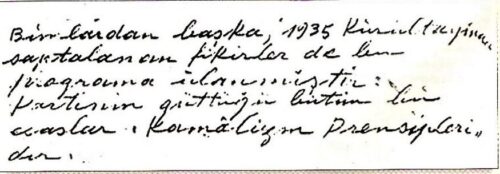 Bunlardan başka, 1935 Kurultayınca
saptalanan fikirler de bu
programa
Partinin güttüğü bütün bu
esaslar, Kamâlizm Prensipleri„
dir.